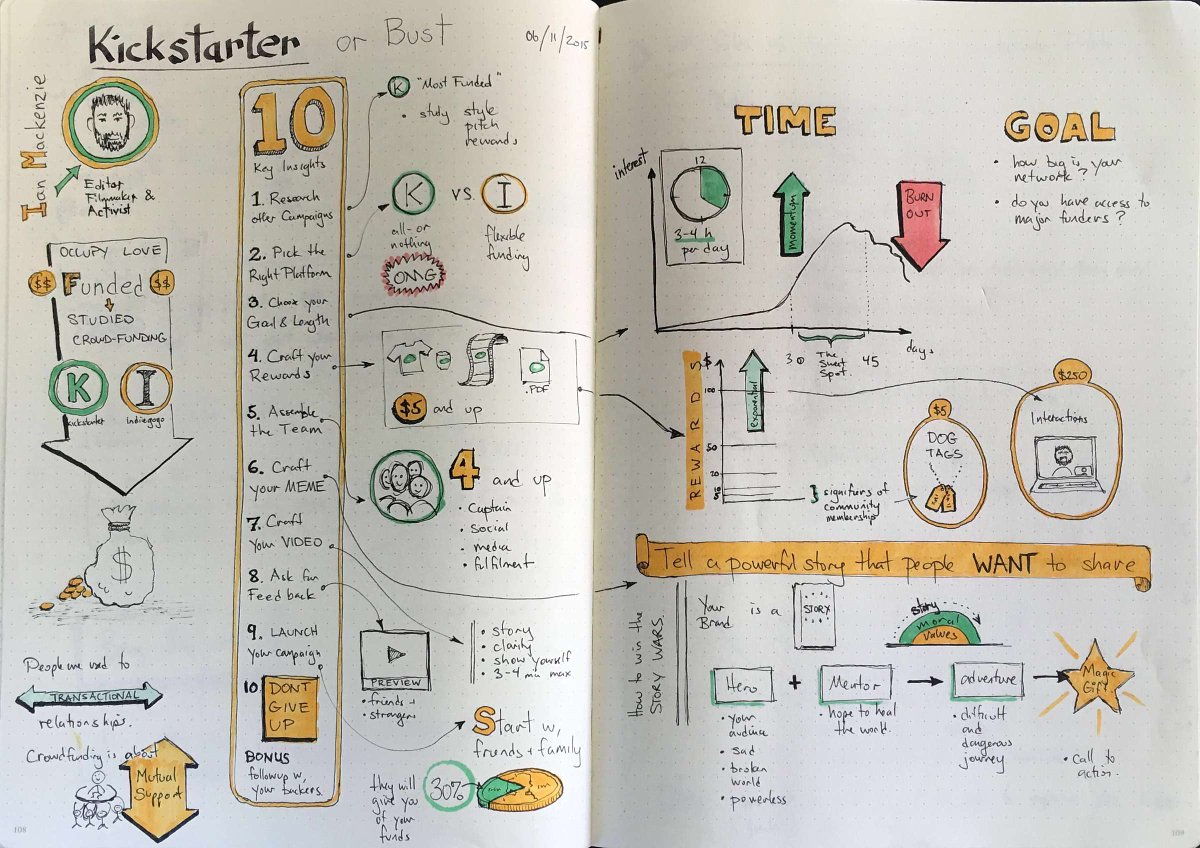 Kickstarter or Bust
06/11/2015
Ian Mackenzie
Editor
Filmmaker &
Activist
OCCUPY LOVE
$$ Funded $$
STUDIED
CROWD-FUNDING
K I
kickstarter indiegogo
$
People are used to
TRANSACTIONAL
relationships.
Crowdfunding is about
Mutual
Support
108
10
Key Insights
1. Research
other Campaigns
2. Pick the
Right Platform
3. Choose your
Goal & Length
4. Craft your
Rewards
5. Assemble
the Team
6. Craft
your MEME
7. Craft
your VIDEO
8. Ask for
Feedback
9. LAUNCH
your campaign
10. DONT
GIVE
UP
BONUS
followup w,
your backers
K "Most Funded"
• study style
pitch
rewards
K VS. I
all-or
nothing
flexible
funding
OMG
.PDF
$5 and up
4 and up
• Captain
• Social
• media
• fulfilment
PREVIEW
• friends +
• strangers
• story
• clarity
• show yourself
• 3-4 min max
Start w,
friends + family
they will
give you
30%
of your
funds
TIME
interest
12
3-4 h
per day
momentum
BURN
OUT
30 The
Sweet
Spot
45
days
GOAL
• how big is your
network?
• do you have access to
major funders?
REWARDS
$
100
50
20
10
5
exponential
signifiers of
community
membership
$5
DOG
TAGS
$250
Interactions
Tell a powerful story that people WANT to share
How to win the
STORY WARS.
Your
Brand is a STORY
story
moral
values
Hero + Mentor adventure Magic
Gift
• your
audience
• sad
• broken
world
• powerless
• hope to heal
the world.
• difficult
and
dangerous
journey
• call to
action.
109